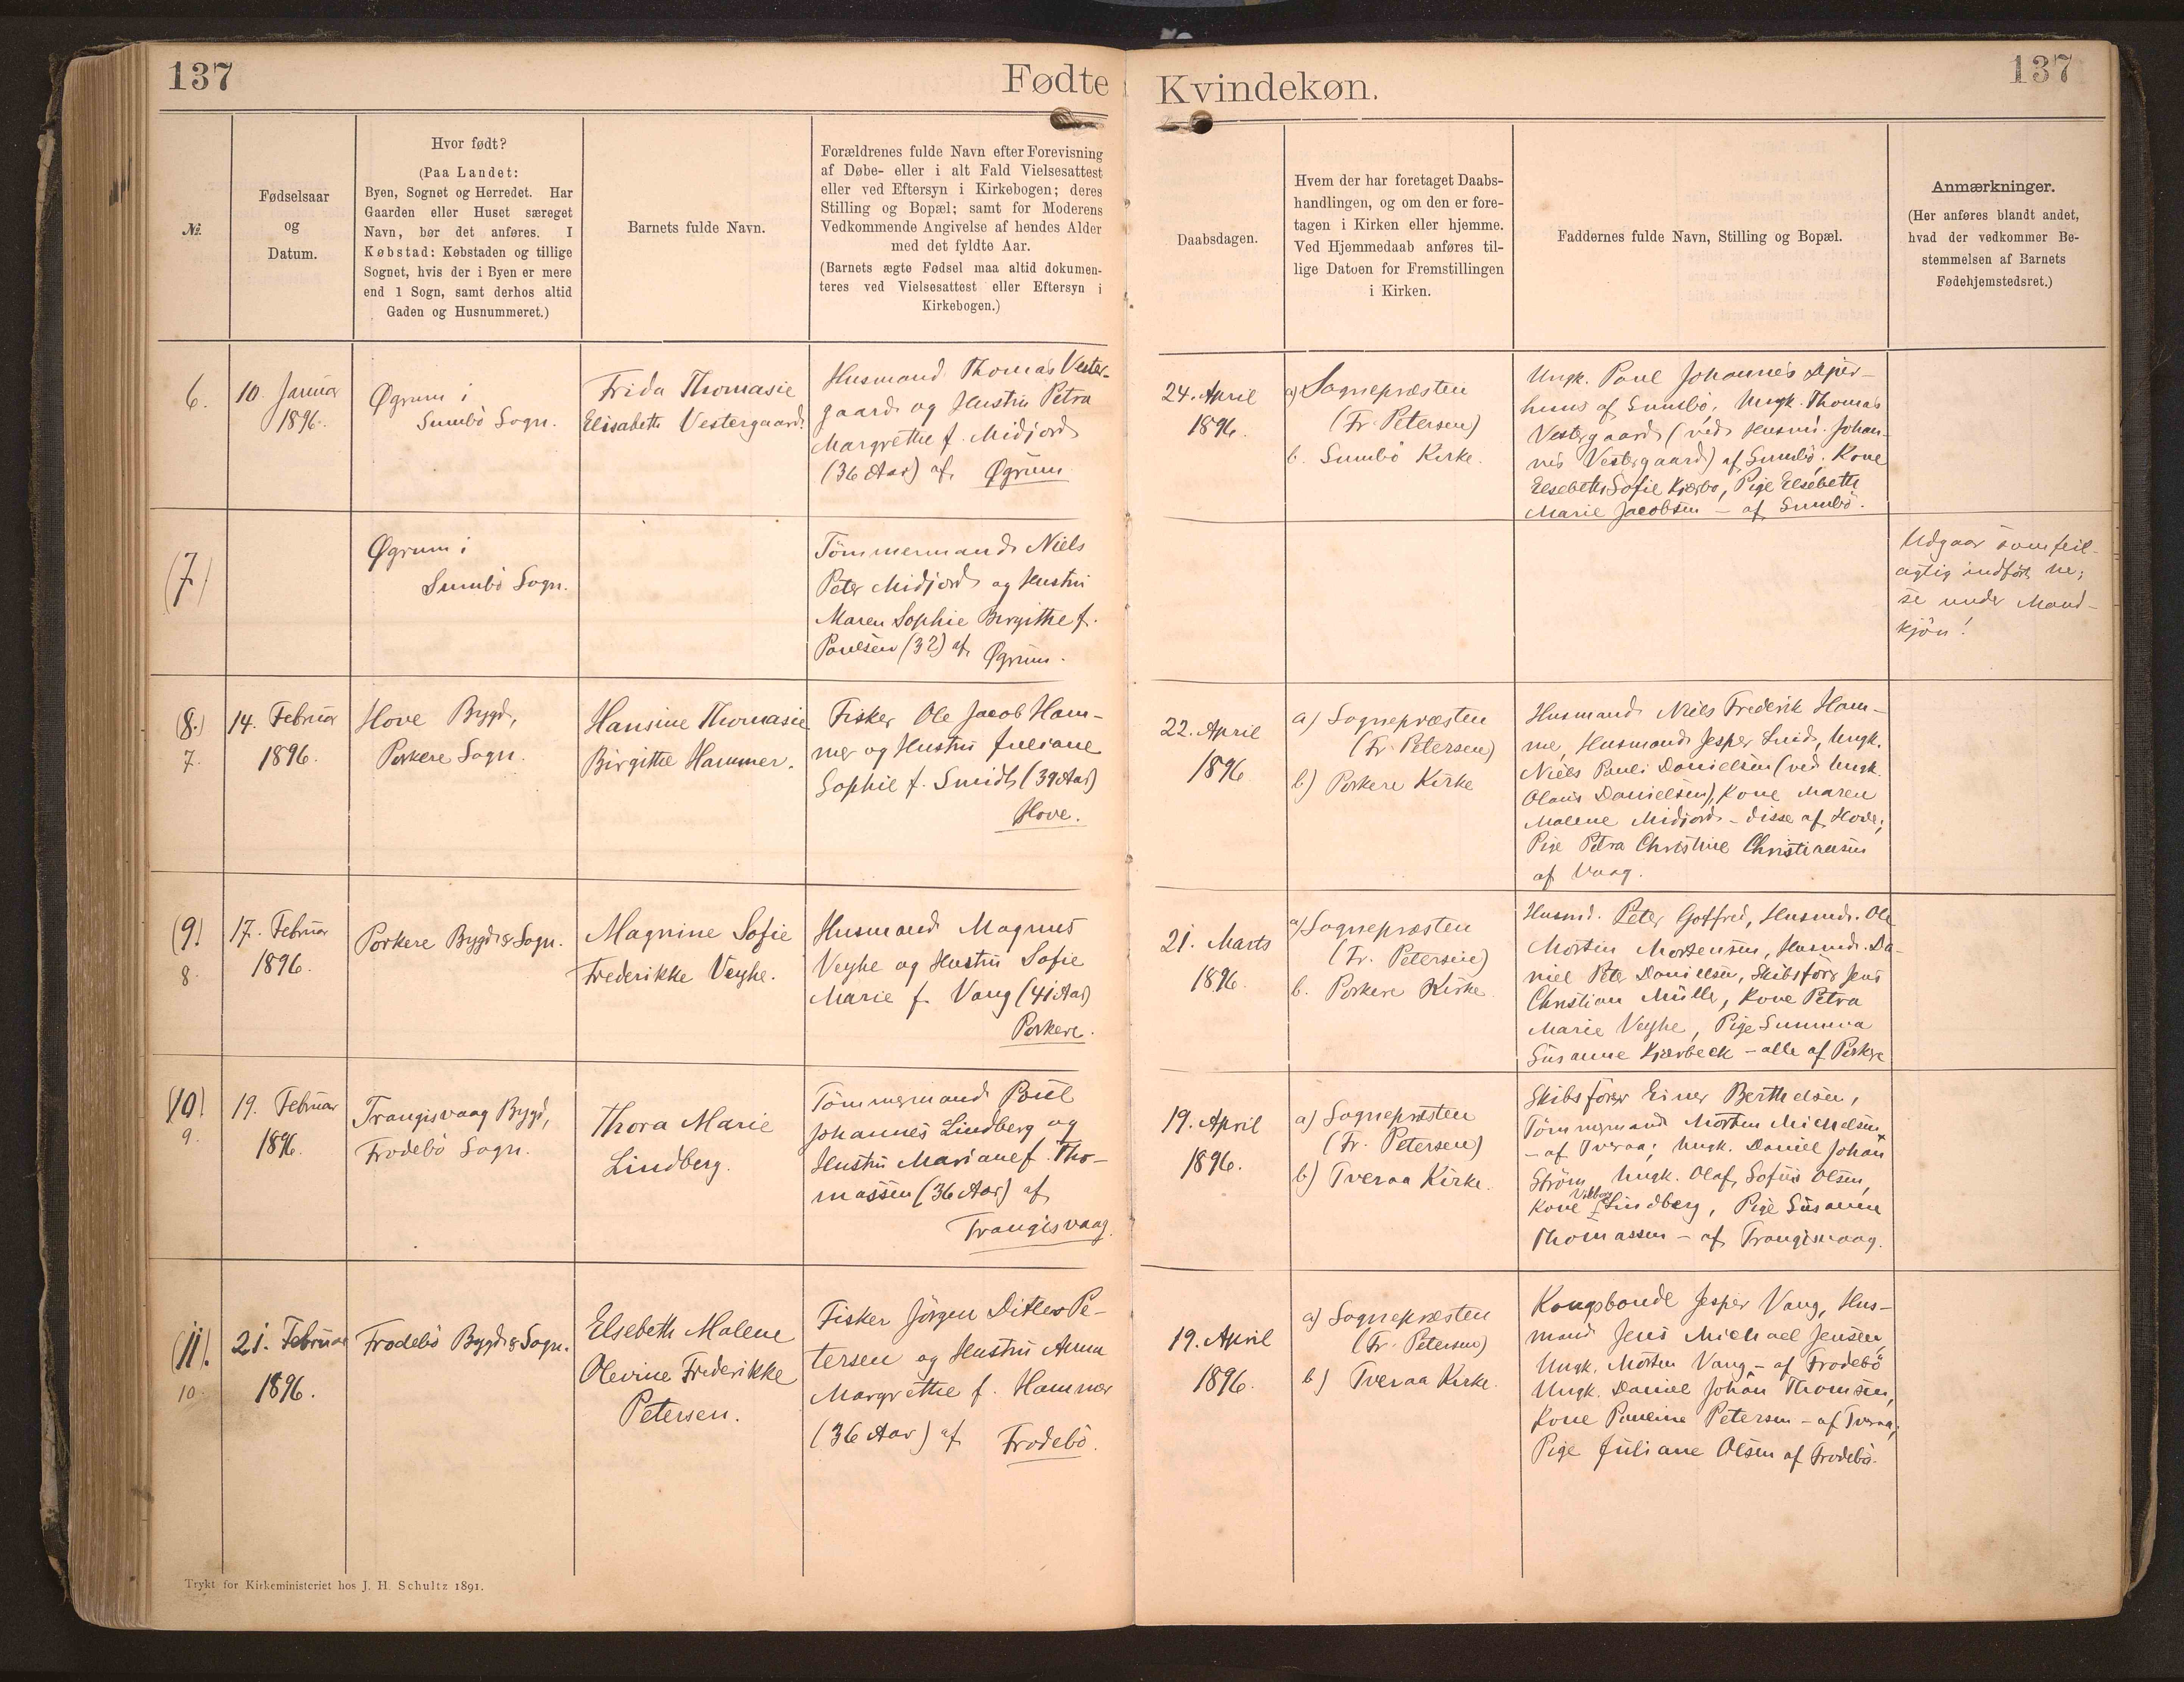 137
Fødte
Kvindekøn.
137
№.
Fødselsaar
og
Datum.
Hvor født?
(Paa Landet:
Byen, Sognet og Herredet. Har
Gaarden eller Huset særeget
Navn, bør det anføres. I
Købstad: Købstaden og tillige
Sognet, hvis der i Byen er mere
end 1 Sogn, samt derhos altid
Gaden og Husnummeret.)
Barnets fulde Navn.
Forældrenes fulde Navn efter Forevisning
af Døbe- eller i alt Fald Vielsesattest
eller ved Eftersyn i Kirkebogen; deres
Stilling og Bopæl; samt for Moderens
Vedkommende Angivelse af hendes Alder
med det fyldte Aar.
(Barnets ægte Fødsel maa altid dokumen-
teres ved Vielsesattest eller Eftersyn i
Kirkebogen.)
Daabsdagen.
Hvem der har foretaget Daabs-
handlingen, og om den er fore-
tagen i Kirken eller hjemme.
Ved Hjemmedaab anføres til-
lige Datoen for Fremstillingen
i Kirken.
Faddernes fulde Navn, Stilling og Bopæl.
Anmærkninger.
(Her anføres blandt andet,
hvad der vedkommer Be-
stemmelsen af Barnets
Fødehjemstedsret.)
6.
10. Januar
1896.
Øgrum i
Sumbö Sogn.
Frida Thomasie
Elisabeth Vestergaard.
Husmand Thomas Vester-
gaard og Hustru Petra
Margrethe f. Midjord
(36 Aar) af Øgrum
24. April
1896.
a) Sognepræsten
(Fr. Petersen)
b. Sumbö Kirke.
Ungk. Poul Johannes
af Sumbö, Ungk. Thomas
Vestergaard (ved Husm. Johan-
nes Vestergaard) af Sumbö. Kone
Elsebeth Sofie Kjærbo, Pige Elsebeth
Marie Jacobsen – af Sumbö.
(7.)
Øgrum i
Sumbö Sogn.
Tömmermand Niels
Peter Midjord og Hustru
Maren Sophie Birgithe f.
Poulsen (32) af Øgrum.
Udgaar som feil-
agtig indført her;
se under Mand-
kjön!
(8.)
7.
14. Februar
1896.
Hove Bygd,
Porkere Sogn.
Hansine Thomasie
Birgithe Hammer.
Fisker Ole Jacob Ham-
mer og Hustru Juliane
Sophie f. Smidt (39 Aar)
Hove.
22. April
1896
a) Sognepræsten
(Fr. Petersen)
b) Porkere Kirke
Husmand Niels Frederik Ham-
mer, Husmand Jesper Smid, Ungk.
Niels Pauli Danielsen (ved Ungk.
Olaus Danielsen), Kone Maren
Malene Midjord – disse af Hove;
Pige Petra Christine Christiansen
af Vaag.
(9.)
8.
17. Februar
1896.
Porkere Bygd & Sogn.
Magnine Sofie
Frederikke Veyhe.
Husmand Magnus
Veyhe og Hustru Sofie
Marie f. Vang (41 Aar)
Porkere.
21. Marts
1896.
a) Sognepræsten
(Fr. Petersen)
b. Porkere Kirke.
Husmd. Peter Gotfred, Husmd. Ole
Morten Mortensen, Husmd. Da-
niel Peter Danielsen, Skibsförer Jens
Christian Müller, Kone Petra
Marie Veyhe, Pige Sunneva
Susanne Kjærbeck – alle af Porkere
(10).
9.
19. Februar
1896.
Trangisvaag Bygd,
Frodebö Sogn.
Thora Marie
Lindberg.
Tömmermand Poul
Johannes Lindberg og
Hustru Mariane f. Tho-
massen (36 Aar) af
Trangisvaag.
19. April
1896.
a) Sognepræsten
(Fr. Petersen)
b) Tveraa Kirke.
Skibsförer Einer Berthelsen,
Tömmermand Morten Michelsen
– af Tveraa; Ungk. Daniel Johan
Ström, Ungk. Olaf Sofus Olsen,
Kone Lindberg, Pige Susanne
Thomassen – af Trangisvaag.
(11).
10.
21. Februar
1896.
Frodebö Bygd & Sogn.
Elsebeth Malene
Olevine Frederikke
Petersen.
Fisker Jörgen Ditlev Pe-
tersen og Hustru Anna
Margrethe f. Hammer
(36 Aar) af Frodebö.
19. April
1896.
a) Sognepræsten
(Fr. Petersen)
b) Tveraa Kirke.
Kongsbonde Jesper Vang, Hus-
mand Jens Michael Jensen,
Ungk. Morten Vang – af Frodebö
Ungk. Daniel Johan Thomsen,
Kone Pauline Petersen – af Tveraa;
Pige Juliane Olsen af Frodebö.
Trykt for Kirkeministeriet hos J. H. Schultz 1891.